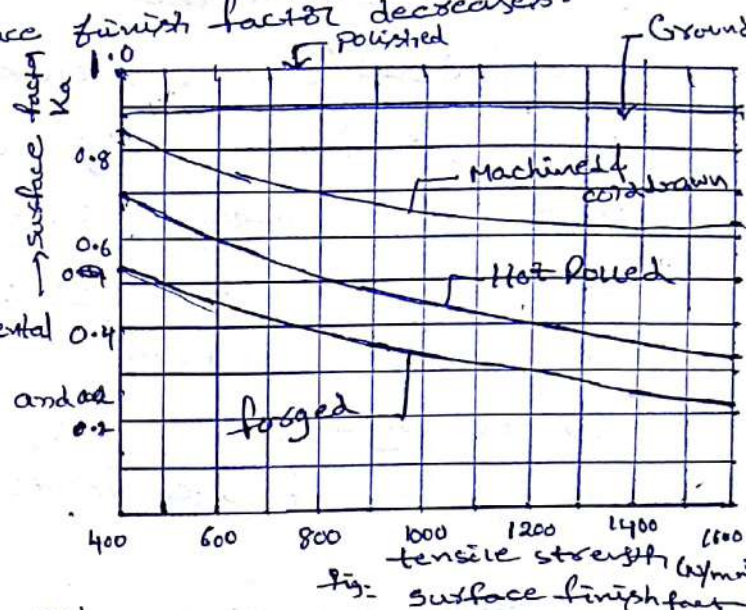 ce finish factor decreases.
Polished
Ground
1.0
→ surface factor
Ka
0.8
Machined &
cold drawn
0.6
Hot Rolled
ental 0.4
and 0.2
0.2
forged
400 600 800 1000 1200 1400 1600
tensile strength (N/mm
fig:- surface finish fact